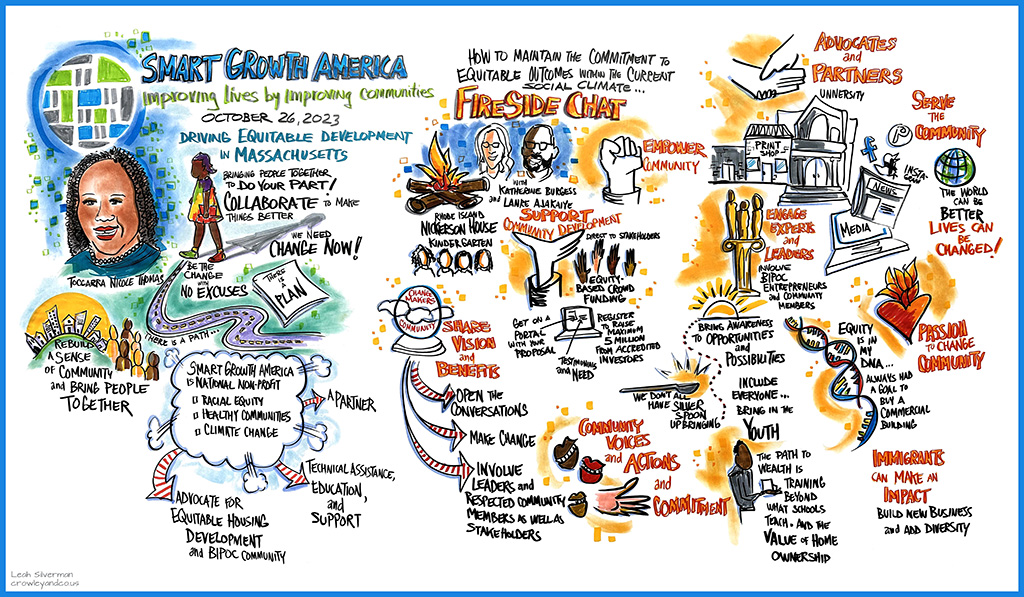 SMART GROWTH AMERICA
Improving lives by improving communities
OCTOBER 26, 2023
DRIVING EQUITABLE DEVELOPMENT
IN MASSACHUSETTS
BRINGING PEOPLE TOGETHER
TO DO YOUR PART!
COLLABORATE TO MAKE
THINGS BETTER
WE NEED
CHANGE NOW!
TOCCARRA NICOLE THOMAS
BE THE
CHANGE
WITH
NO EXCUSES
THERE
IS A
PLAN
THERE IS A PATH...
REBUILD
A SENSE
OF COMMUNITY
AND BRING PEOPLE
TOGETHER
SMART GROWTH AMERICA
IS NATIONAL NON-PROFIT
RACIAL EQUITY
HEALTHY COMMUNITIES
CLIMATE CHANGE
A PARTNER
TECHNICAL ASSISTANCE,
EDUCATION,
AND
SUPPORT
ADVOCATE FOR
EQUITABLE HOUSING
DEVELOPMENT
AND BIPOC COMMUNITY
HOW TO MAINTAIN THE COMMITMENT TO
EQUITABLE OUTCOMES WITHIN THE CURRENT
SOCIAL CLIMATE...
FIRESIDE CHAT
WITH
KATHERINE BURGESS
AND LANRE AJAKAIYE
EMPOWER
COMMUNITY
RHODE ISLAND
NICKERSON HOUSE
KINDERGARTEN
SUPPORT
COMMUNITY DEVELOPMENT
DIRECT TO STAKEHOLDERS
EQUITY-
BASED CROWD
FUNDING
GET ON A
PORTAL
WITH YOUR
PROPOSAL
REGISTER
TO RAISE
MAXIMUM
5 MILLION
FROM ACCREDITED
INVESTORS
TESTIMONIES
AND NEED
CHANGE
MAKERS
COMMUNITY
SHARE
VISION
AND
BENEFITS
OPEN THE
CONVERSATIONS
MAKE CHANGE
INVOLVE
LEADERS AND
RESPECTED COMMUNITY
MEMBERS AS WELL AS
STAKEHOLDERS
WE DON'T ALL
HAVE SILVER
SPOON
UPBRINGING
COMMUNITY
VOICES
AND ACTIONS
AND
COMMITMENT
ADVOCATES
AND
PARTNERS
UNIVERSITY
PRINT
SHOP
SERVE THE
COMMUNITY
f
P
INSTA-
GRAM
NEWS
MEDIA
THE WORLD
CAN BE
BETTER
LIVES CAN
BE
CHANGED!
ENGAGE
EXPERTS
AND
LEADERS
INVOLVE
BIPOC
ENTREPRENEURS
AND COMMUNITY
MEMBERS
BRING AWARENESS
TO OPPORTUNITIES
AND
POSSIBILITIES
INCLUDE
EVERYONE...
BRING IN THE
YOUTH
THE PATH TO
WEALTH IS
TRAINING
BEYOND
WHAT SCHOOLS
TEACH. AND THE
VALUE OF HOME
OWNERSHIP
EQUITY
IS IN
MY
DNA...
ALWAYS HAD
A GOAL TO
BUY A
COMMERCIAL
BUILDING
PASSION
TO CHANGE
COMMUNITY
IMMIGRANTS
CAN MAKE AN
IMPACT
BUILD NEW BUSINESS
AND ADD DIVERSITY
Leah Silverman
crowleyandco.us